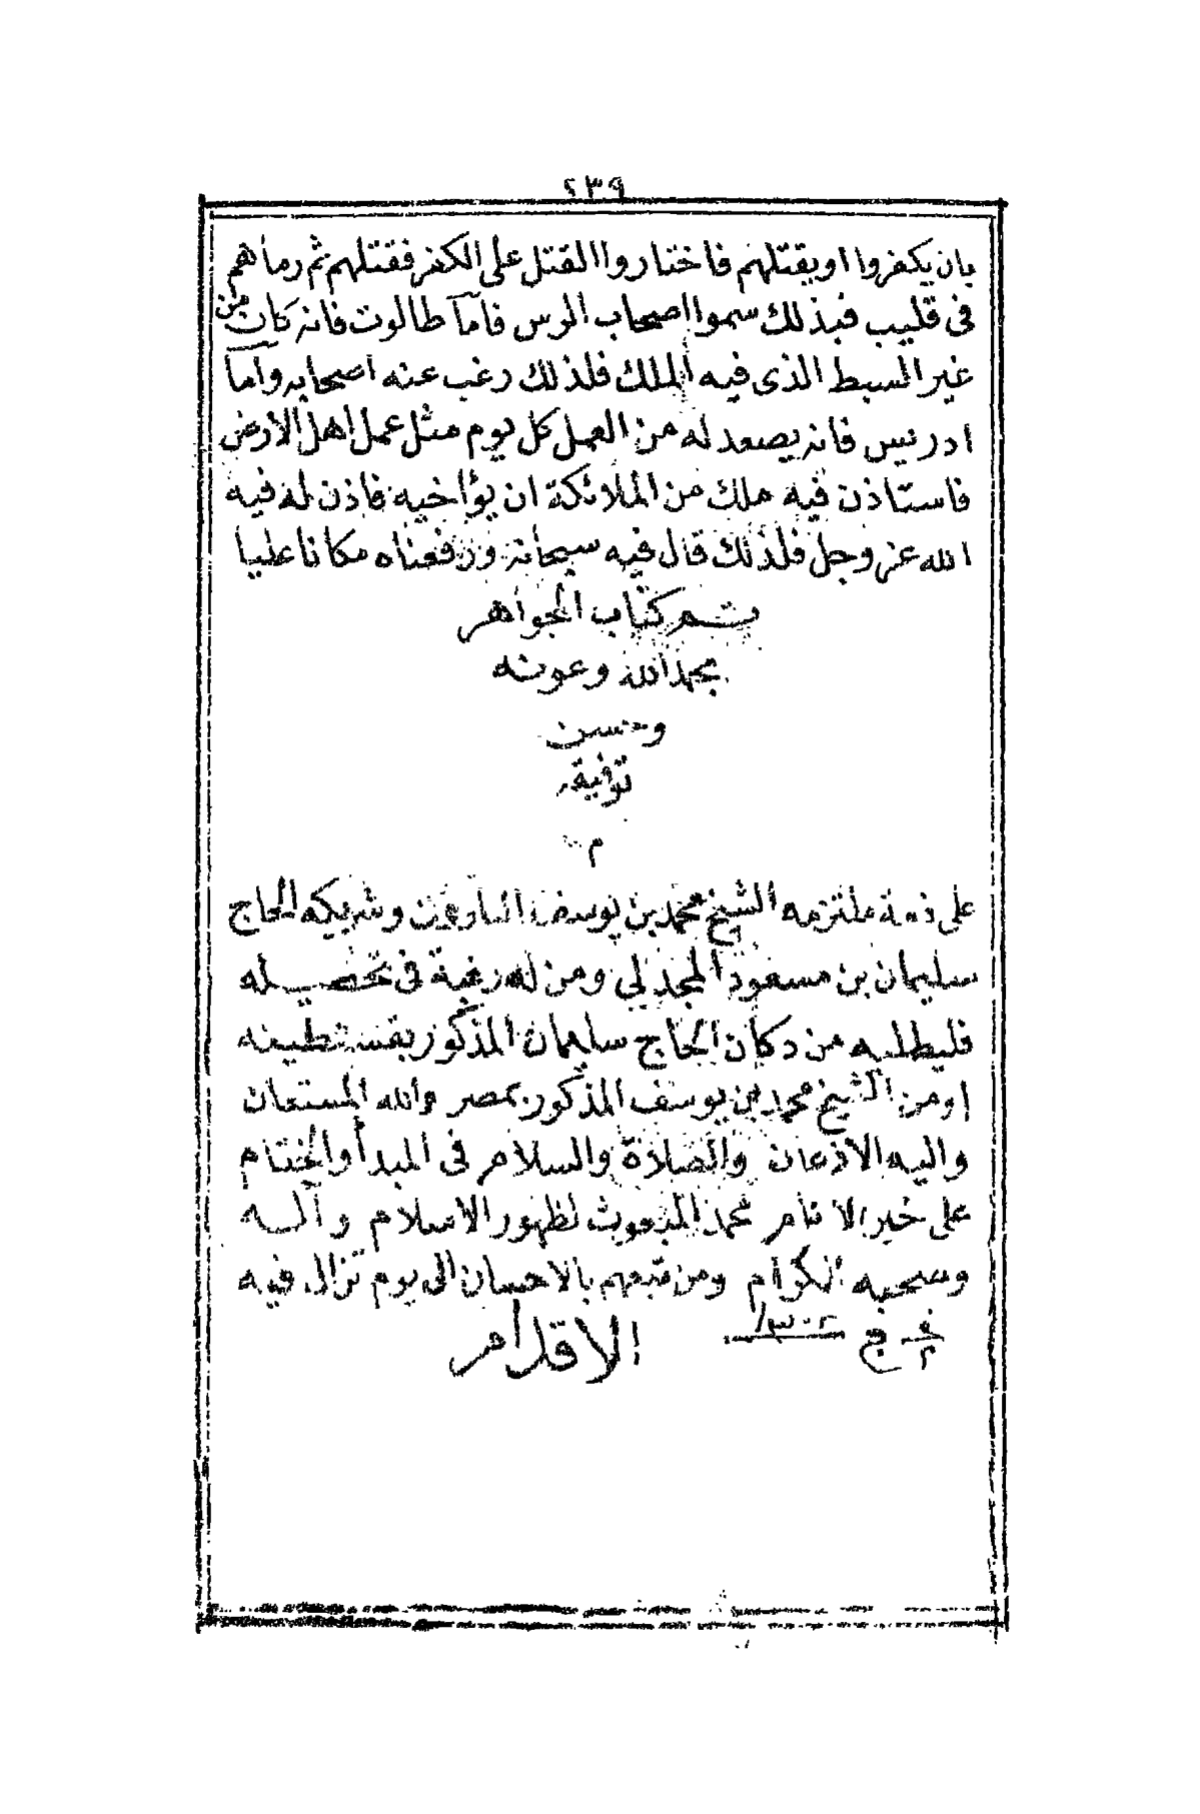 ٢٣٩
بان يكفروا او يقتلهم فاختاروا القتل على الكفر فقتلهم ثم رماهم
فى قليب فبذلك سموا اصحاب الرس فاما طالوت فانه كان من
غير السبط الذى فيه الملك فلذلك رغب عنه اصحابه وأما
ادريس فانه يصعد له من العمل كل يوم مثل عمل اهل الارض
فاستاذن فيه ملك من الملائكة ان يؤاخيه فاذن له فيه
الله عز وجل فلذلك قال فيه سبحانه ورفعناه مكانا عليا
تم كتاب الجواهر
بحمد الله وعونه
وحسن
توفيقه
م
على ذمة ملتزمه الشيخ محمد بن يوسف البارونى وشريكه الحاج
سليمان بن مسعود المجدلي ومن له رغبة فى تحصيله
فليطلبه من دكان الحاج سليمان المذكور بقسنطينه
او من الشيخ محمد بن يوسف المذكور بمصر والله المستعان
واليه الاذعان والصلاة والسلام فى المبدأ والختام
على خير الانام محمد المبعوث لظهور الاسلام وآله
وصحبه الكرام ومن تبعهم بالاحسان الى يوم تزال فيه
الاقدام ١٣٠٢